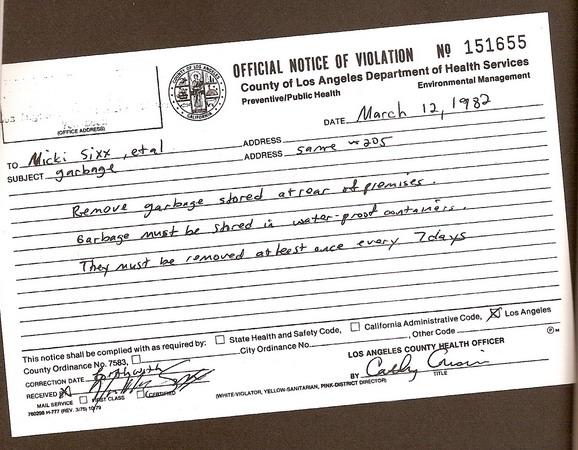 OFFICIAL NOTICE OF VIOLATION No 151655
County of Los Angeles Department of Health Services
Preventive/Public Health Environmental Management
COUNTY OF LOS ANGELES
CALIFORNIA
(OFFICE ADDRESS)
DATE March 12, 1982
TO Micki Sixx, etal ADDRESS
SUBJECT garbage ADDRESS same 205
Remove garbage stored at rear of premises.
Garbage must be stored in water-proof containers.
They must be removed atleast once every 7 days
This notice shall be complied with as required by: State Health and Safety Code, California Administrative Code, X Los Angeles
County Ordinance No. 7583, City Ordinance No. , Other Code
CORRECTION DATE Forthwith LOS ANGELES COUNTY HEALTH OFFICER
RECEIVED X BY Cathy
TITLE
MAIL SERVICE FIRST CLASS CERTIFIED
(WHITE-VIOLATOR, YELLOW-SANITARIAN, PINK-DISTRICT DIRECTOR)
76029S H-777 (REV. 3/75) 10/79